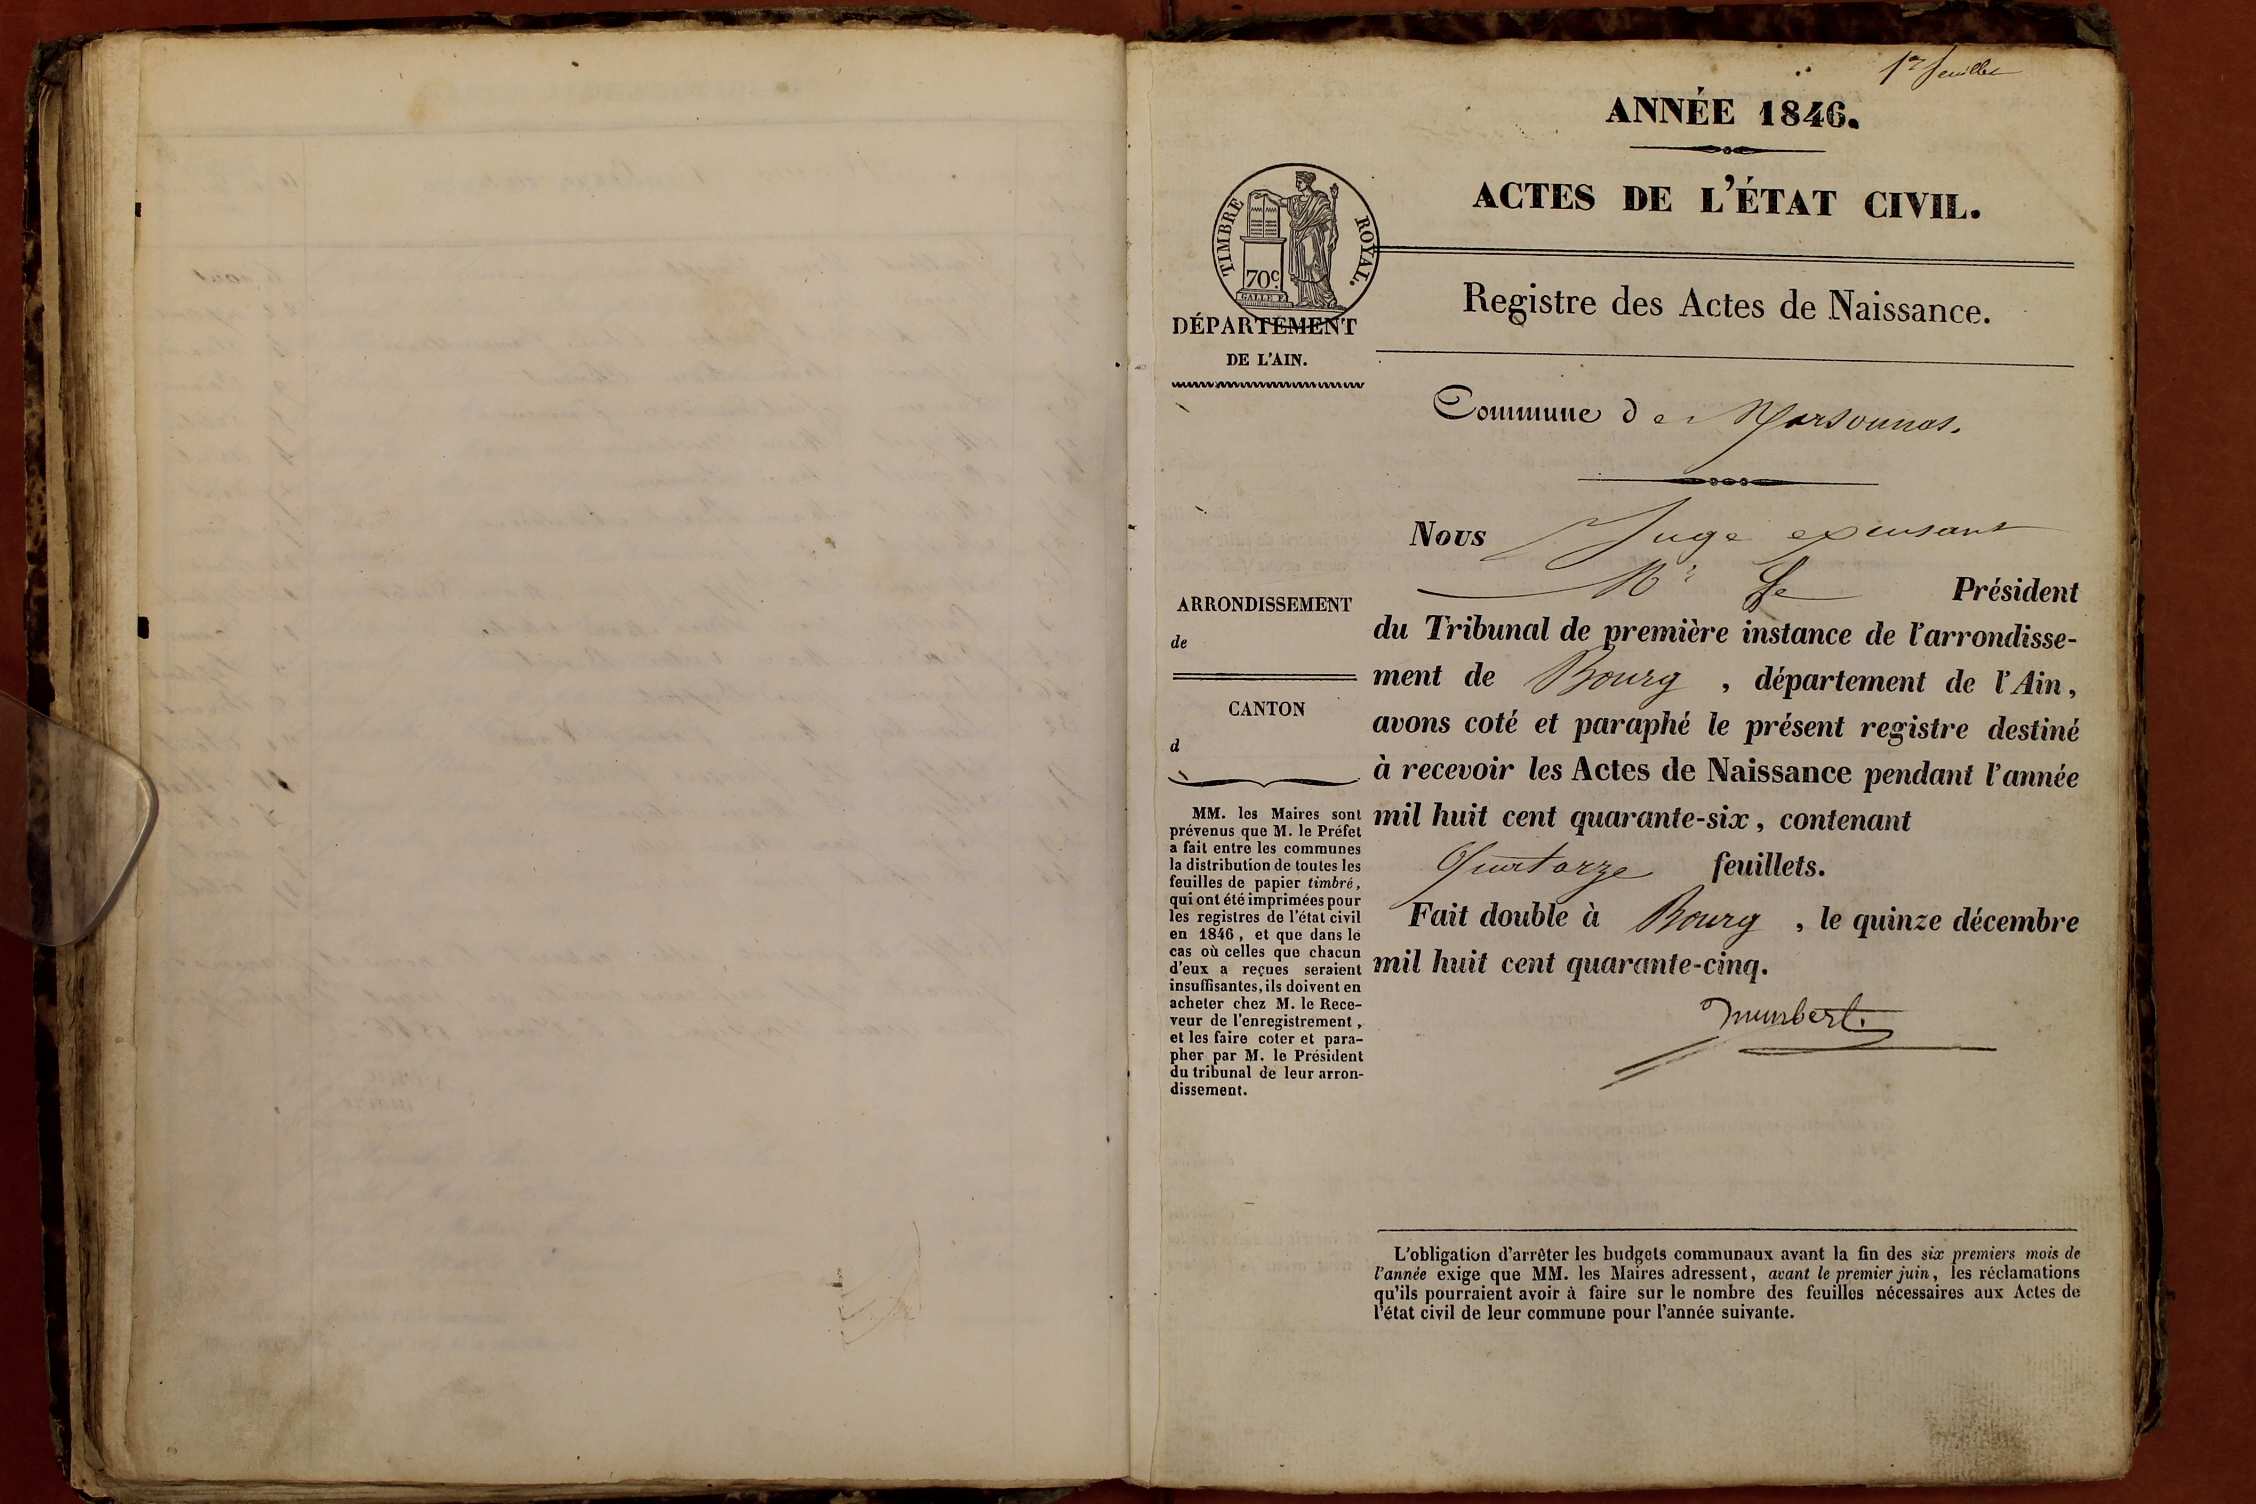 1er feuillet
ANNÉE 1846.
ACTES DE L'ÉTAT CIVIL.
TIMBRE ROYAL.
70c.
GALLE F.
DÉPARTEMENT
DE L'AIN.
Registre des Actes de Naissance.
Commune de Marsonnas.
Nous Juge excusant
Mr Le Président
du Tribunal de première instance de l'arrondisse-
ment de Bourg, département de l'Ain,
avons coté et paraphé le présent registre destiné
à recevoir les Actes de Naissance pendant l'année
mil huit cent quarante-six, contenant
Quatorze feuillets.
Fait double à Bourg, le quinze décembre
mil huit cent quarante-cinq.
ARRONDISSEMENT
de
CANTON
d
MM. les Maires sont
prévenus que M. le Préfet
a fait entre les communes
la distribution de toutes les
feuilles de papier timbré,
qui ont été imprimées pour
les registres de l'état civil
en 1846, et que dans le
cas où celles que chacun
d'eux a reçues seraient
insuffisantes, ils doivent en
acheter chez M. le Rece-
veur de l'enregistrement,
et les faire coter et para-
pher par M. le Président
du tribunal de leur arron-
dissement.
L'obligation d'arrêter les budgets communaux avant la fin des six premiers mois de
l'année exige que MM. les Maires adressent, avant le premier juin, les réclamations
qu'ils pourraient avoir à faire sur le nombre des feuilles nécessaires aux Actes de
l'état civil de leur commune pour l'année suivante.